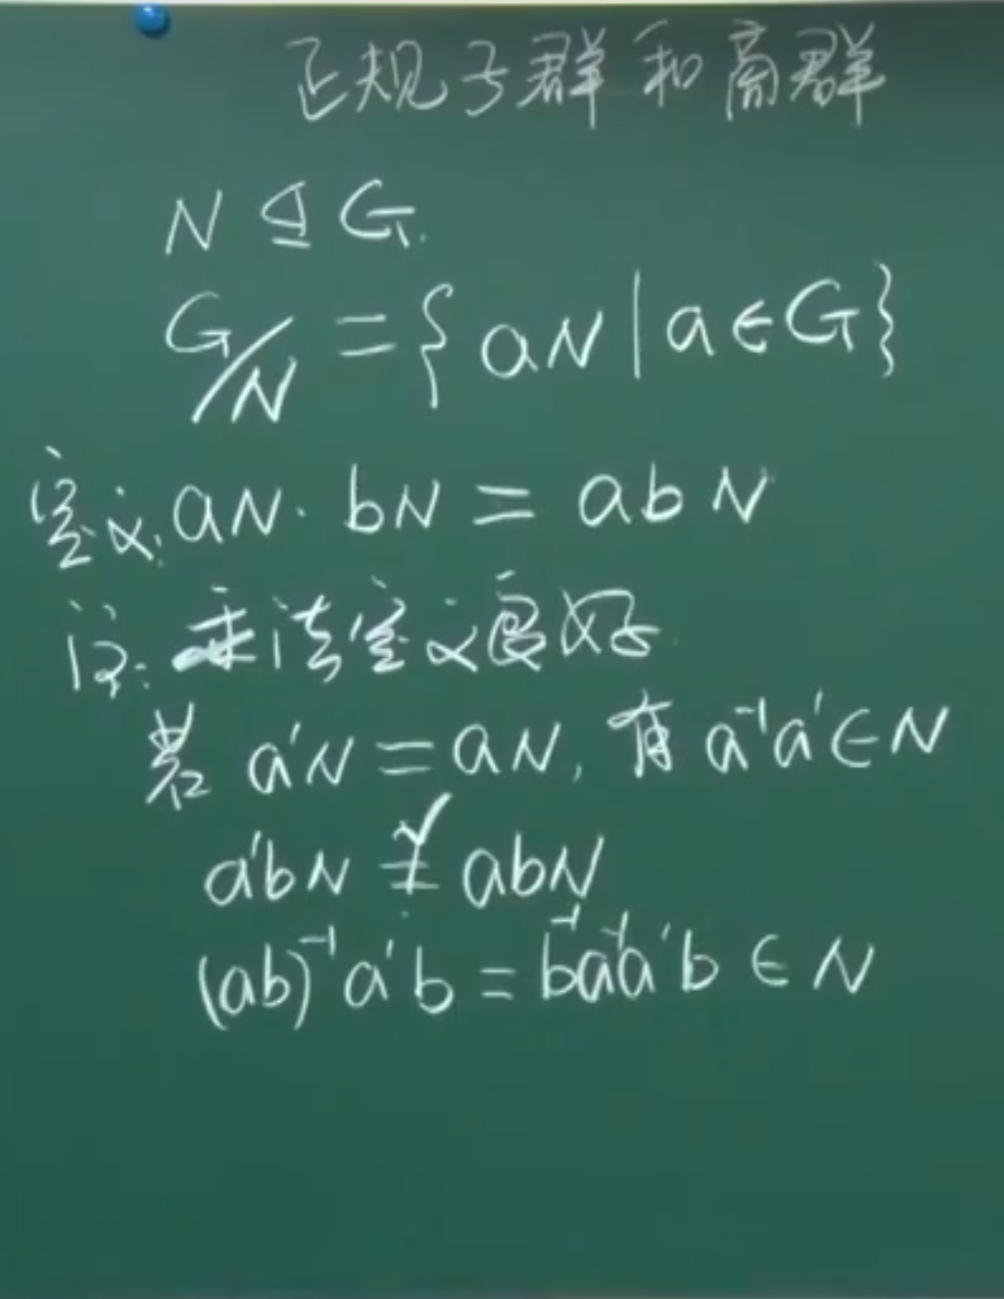 正规子群和商群
N ⊴ G.
G/N = { aN | a ∈ G }
定义: aN · bN = abN
证: 乘法定义良好
若 a'N = aN, 有 a⁻¹a' ∈ N
a'bN =✓ abN
(ab)⁻¹a'b = b⁻¹a⁻¹a'b ∈ N